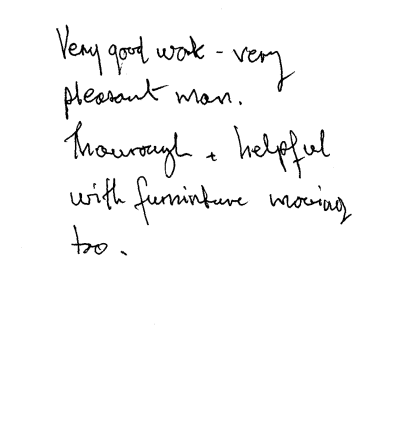 Very good work - very
pleasant man.
Thourough + helpful
with furninture moving
too.